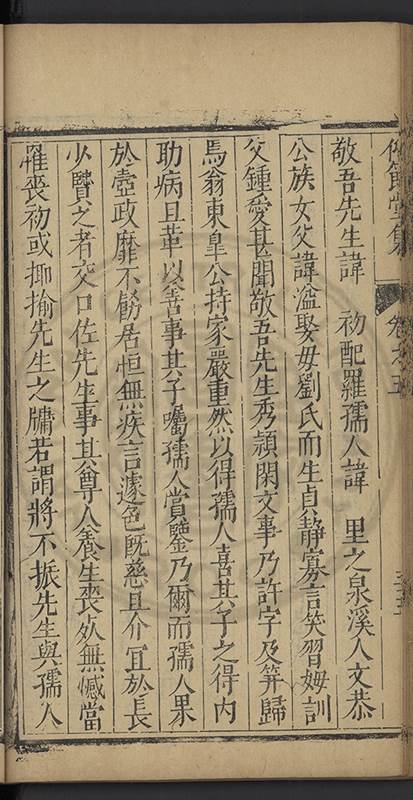 敬吾先生諱　初配羅孺人諱　里之泉溪人文恭
公族女父諱溢娶毋劉氏而生貞靜寡言笑習姆訓
父鍾愛甚聞敬吾先生秀頴閑文事乃許字及笄歸
焉翁東皐公持家嚴重然以得孺人喜其子之得内
助病且革以善事其子囑孺人賞鑒乃爾而孺人果
於壼政靡不飭居恒無疾言遽色旣慈且介宜於長
少賢之者交口佐先生事其尊人養生喪处無憾當
罹喪初或揶揄先生之牖若謂將不振先生與孺人